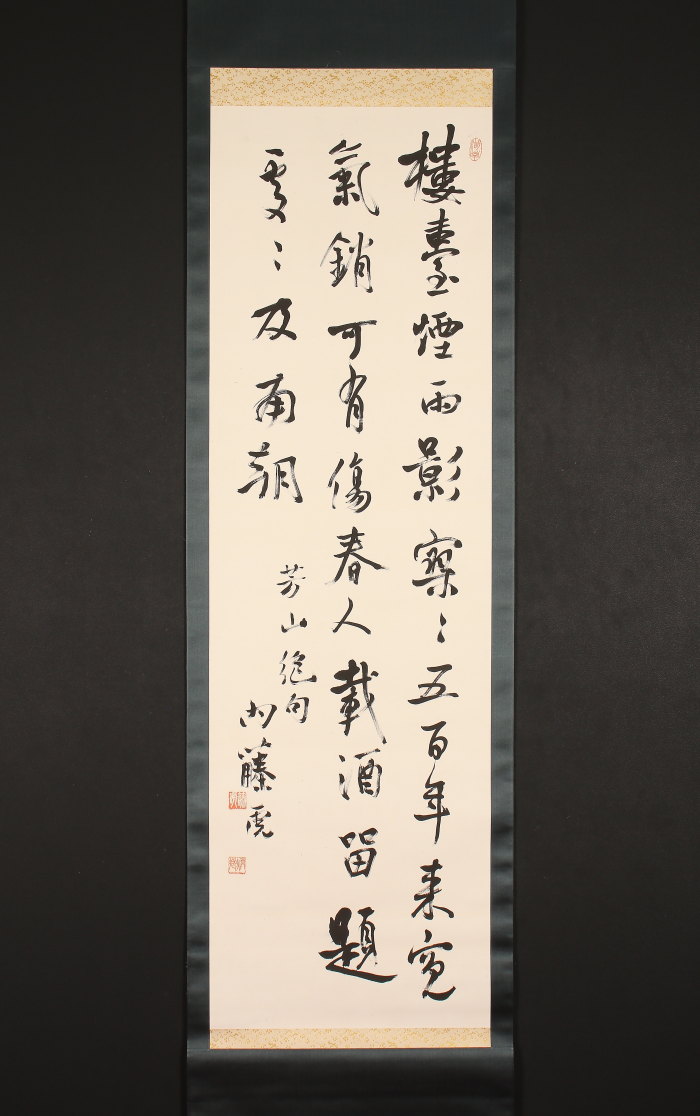 樓臺煙雨影寥〻五百年來寃
氣銷可有傷春人載酒留題
處〻及南朝
芳山絶句
内藤虎